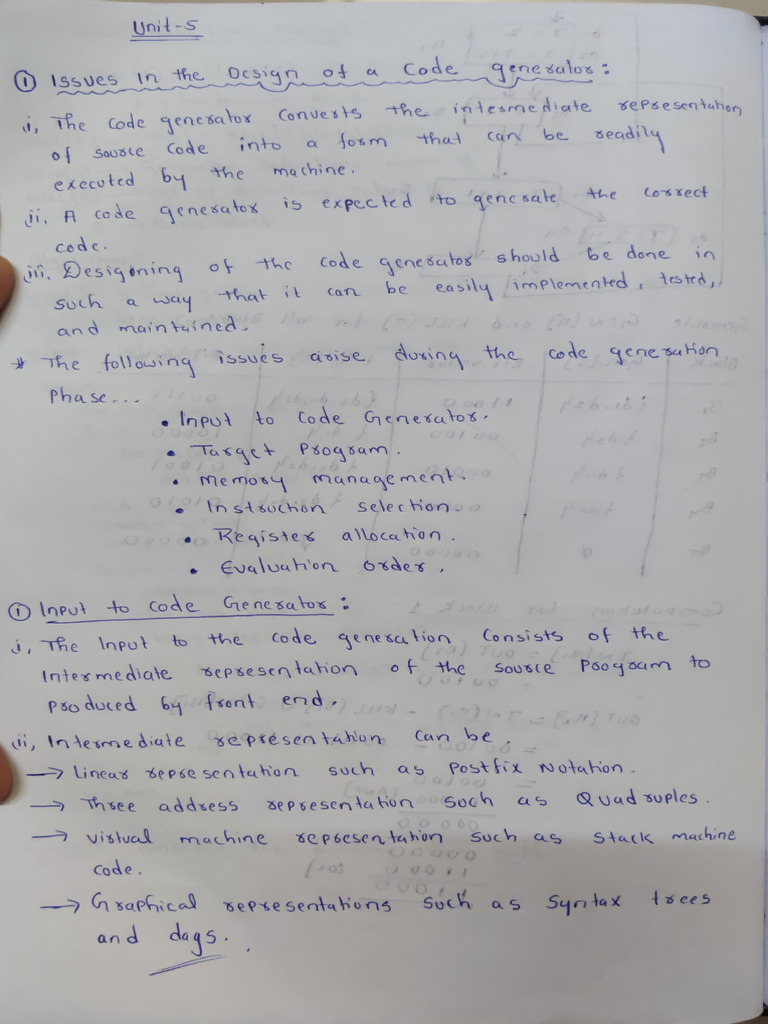 Unit-5
① Issues in the Design of a Code generator:
i, The code generator converts the intermediate representation
of source code into a form that can be readily
executed by the machine.
ii. A code generator is expected to generate the correct
code.
iii. Desigining of the code generator should be done in
such a way that it can be easily implemented, tested,
and maintained.
* The following issues arise during the code generation
Phase...
• Input to Code Generator.
• Target Program.
• Memory management.
• Instruction selection.
• Register allocation.
• Evaluation order.
① Input to code Generator:
i, The Input to the code generation consists of the
Intermediate representation of the source Program to
produced by front end.
ii, Intermediate representation can be.
→ Linear representation such as Postfix Notation.
→ Three address representation such as Quadruples.
→ virtual machine representation such as Stack machine
code.
→ Graphical representations such as Syntax trees
and dags.